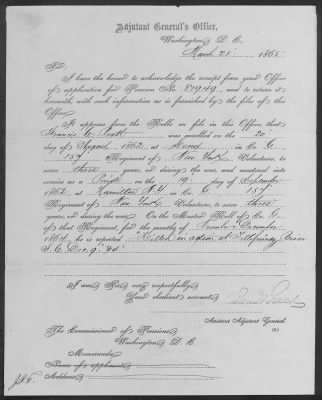 Adjutant General's Office,
Washington, D. C.
March 21st 1865
Sir:
I have the honor to acknowledge the receipt from your Office
of application for Pension No. 87949, and to return it
herewith, with such information as is furnished by the files of this
Office.
It appears from the Rolls on file in this Office, that
Francis C. was enrolled on the
day of August 1862, at in Co. G
157 Regiment of New York Volunteers, to
serve three years, or during the war, and mustered into
service as a on the 19 day of September
1862, at Hamilton N.Y. in Co. G 157
Regiment of New York Volunteers, to serve three
years, or during the war. On the Muster Roll of Co. G
of that Regiment, for the months of November & December
1864, he is reported Killed in action at
S.C. Dec. 9" 64.
I am, Sir, very respectfully,
Your obedient servant,
Assistant Adjutant General.
The Commissioner of Pensions,
Washington, D. C.
Memoranda
Name of applicant
Address